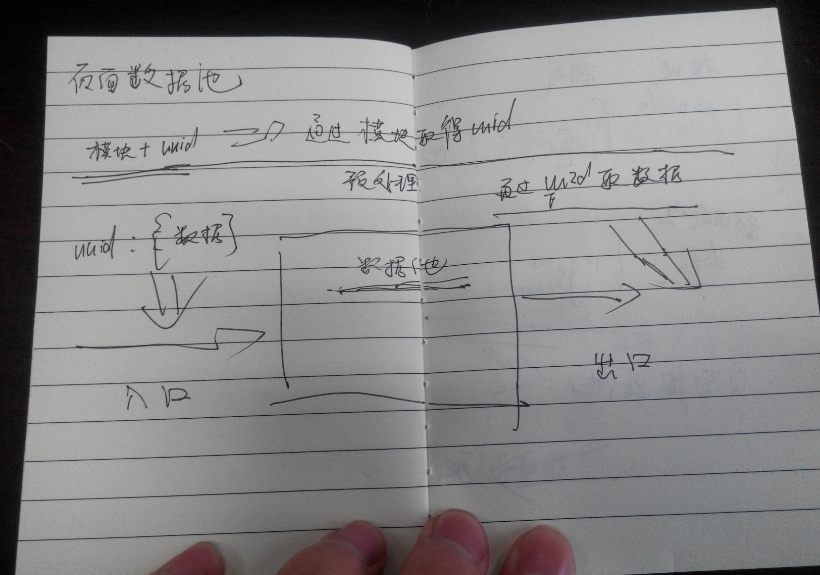 页面数据池
模块 + uuid
通过模块取得uuid
预处理
通过uuid取数据
uuid : {数据}
数据池
入口
出口